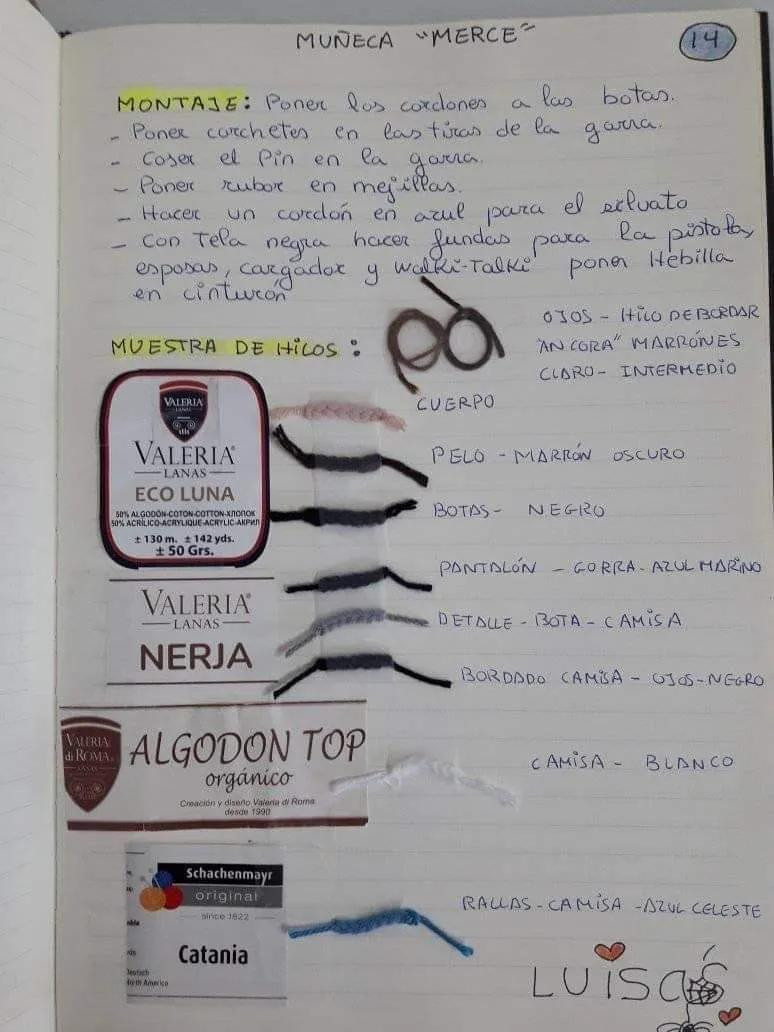 MUÑECA "MERCE"
14
MONTAJE: Poner los cordones a las botas.
- Poner corchetes en las tiras de la gorra.
- Coser el Pin en la gorra.
- Poner rubor en mejillas.
- Hacer un cordón en azul para el
- Con Tela negra hacer fundas para la pistola,
esposas, cargador y Walki-Talki poner Hebilla
en cinturón
MUESTRA DE HILOS:
OJOS - HILO DE BORDAR
"ANCORA" MARRONES
CLARO - INTERMEDIO
CUERPO
VALERIA
LANAS
VALERIA
LANAS
ECO LUNA
50% ALGODÓN-COTON-COTTON-ХЛОПОК
50% ACRÍLICO-ACRYLIQUE-ACRYLIC-АКРИЛ
± 130 m. ± 142 yds.
± 50 Grs.
PELO - MARRÓN OSCURO
BOTAS - NEGRO
PANTALÓN - GORRA - AZUL MARINO
VALERIA
LANAS
NERJA
DETALLE - BOTA - CAMISA
BORDADO CAMISA - OJOS - NEGRO
VALERIA
di ROMA
LANAS
ALGODON TOP
orgánico
Creación y diseño Valeria di Roma
desde 1990
CAMISA - BLANCO
Schachenmayr
original
since 1822
Catania
Deutsch
North America
RALLAS - CAMISA - AZUL CELESTE
LUISA'S